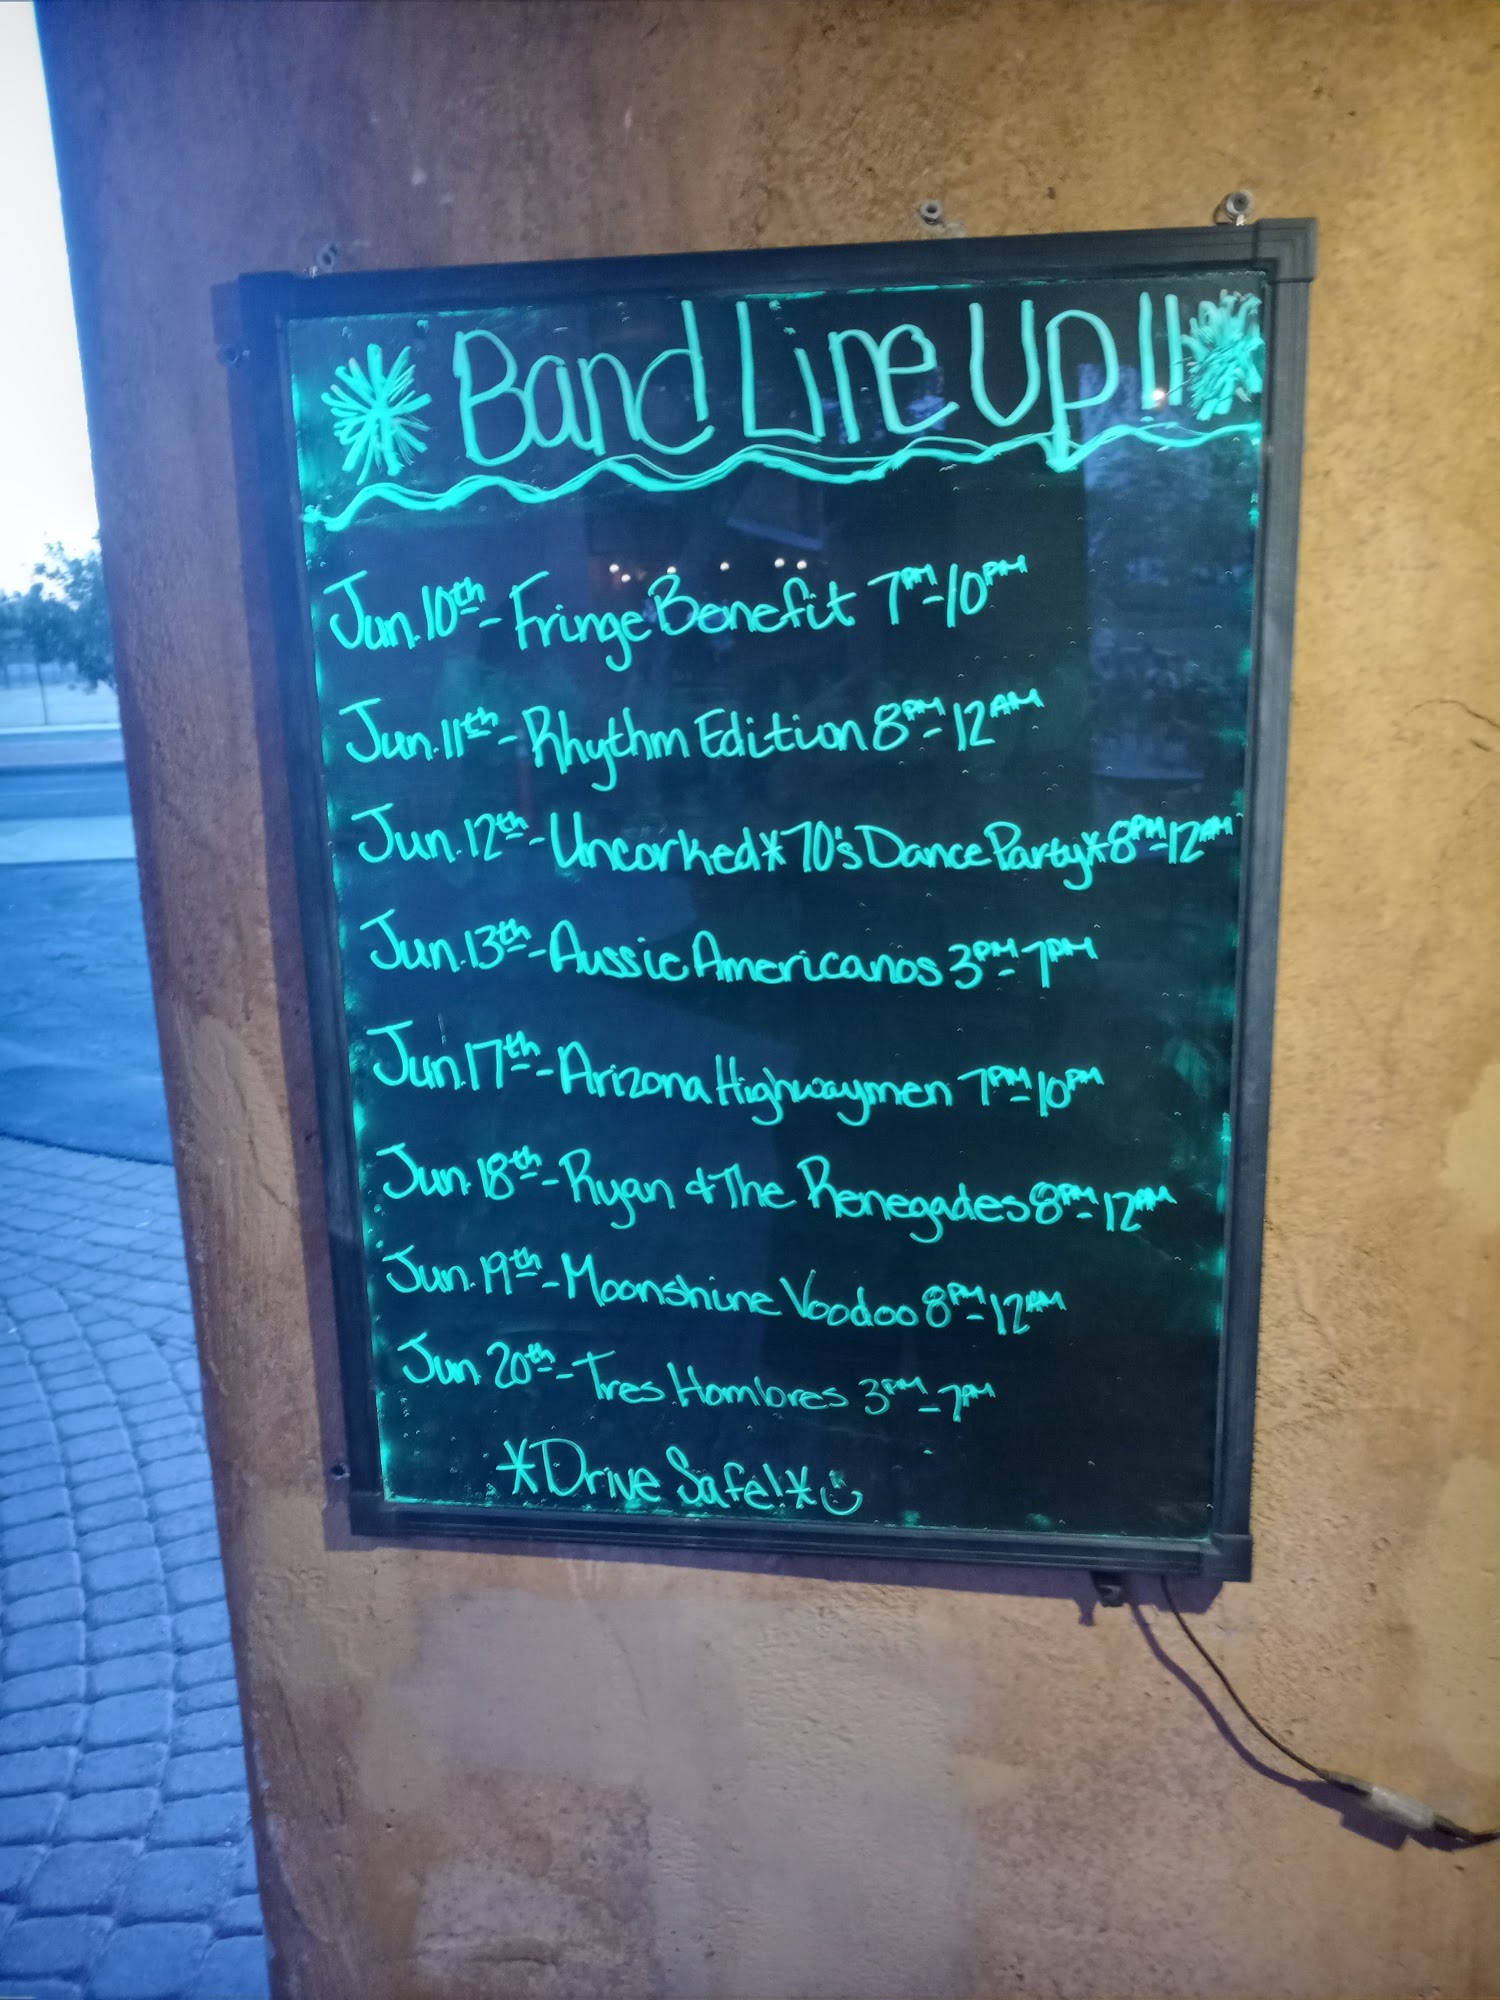 Band Line Up!!
Jun. 10th - Fringe Benefit 7PM-10PM
Jun. 11th - Rhythm Edition 8PM-12AM
Jun. 12th - Uncorked * 70's Dance Party * 8PM-12AM
Jun. 13th - Aussie Americanos 3PM-7PM
Jun. 17th - Arizona Highwaymen 7PM-10PM
Jun. 18th - Ryan & The Renegades 8PM-12AM
Jun. 19th - Moonshine Voodoo 8PM-12AM
Jun 20th - Tres Hombres 3PM-7PM
*Drive Safe!*